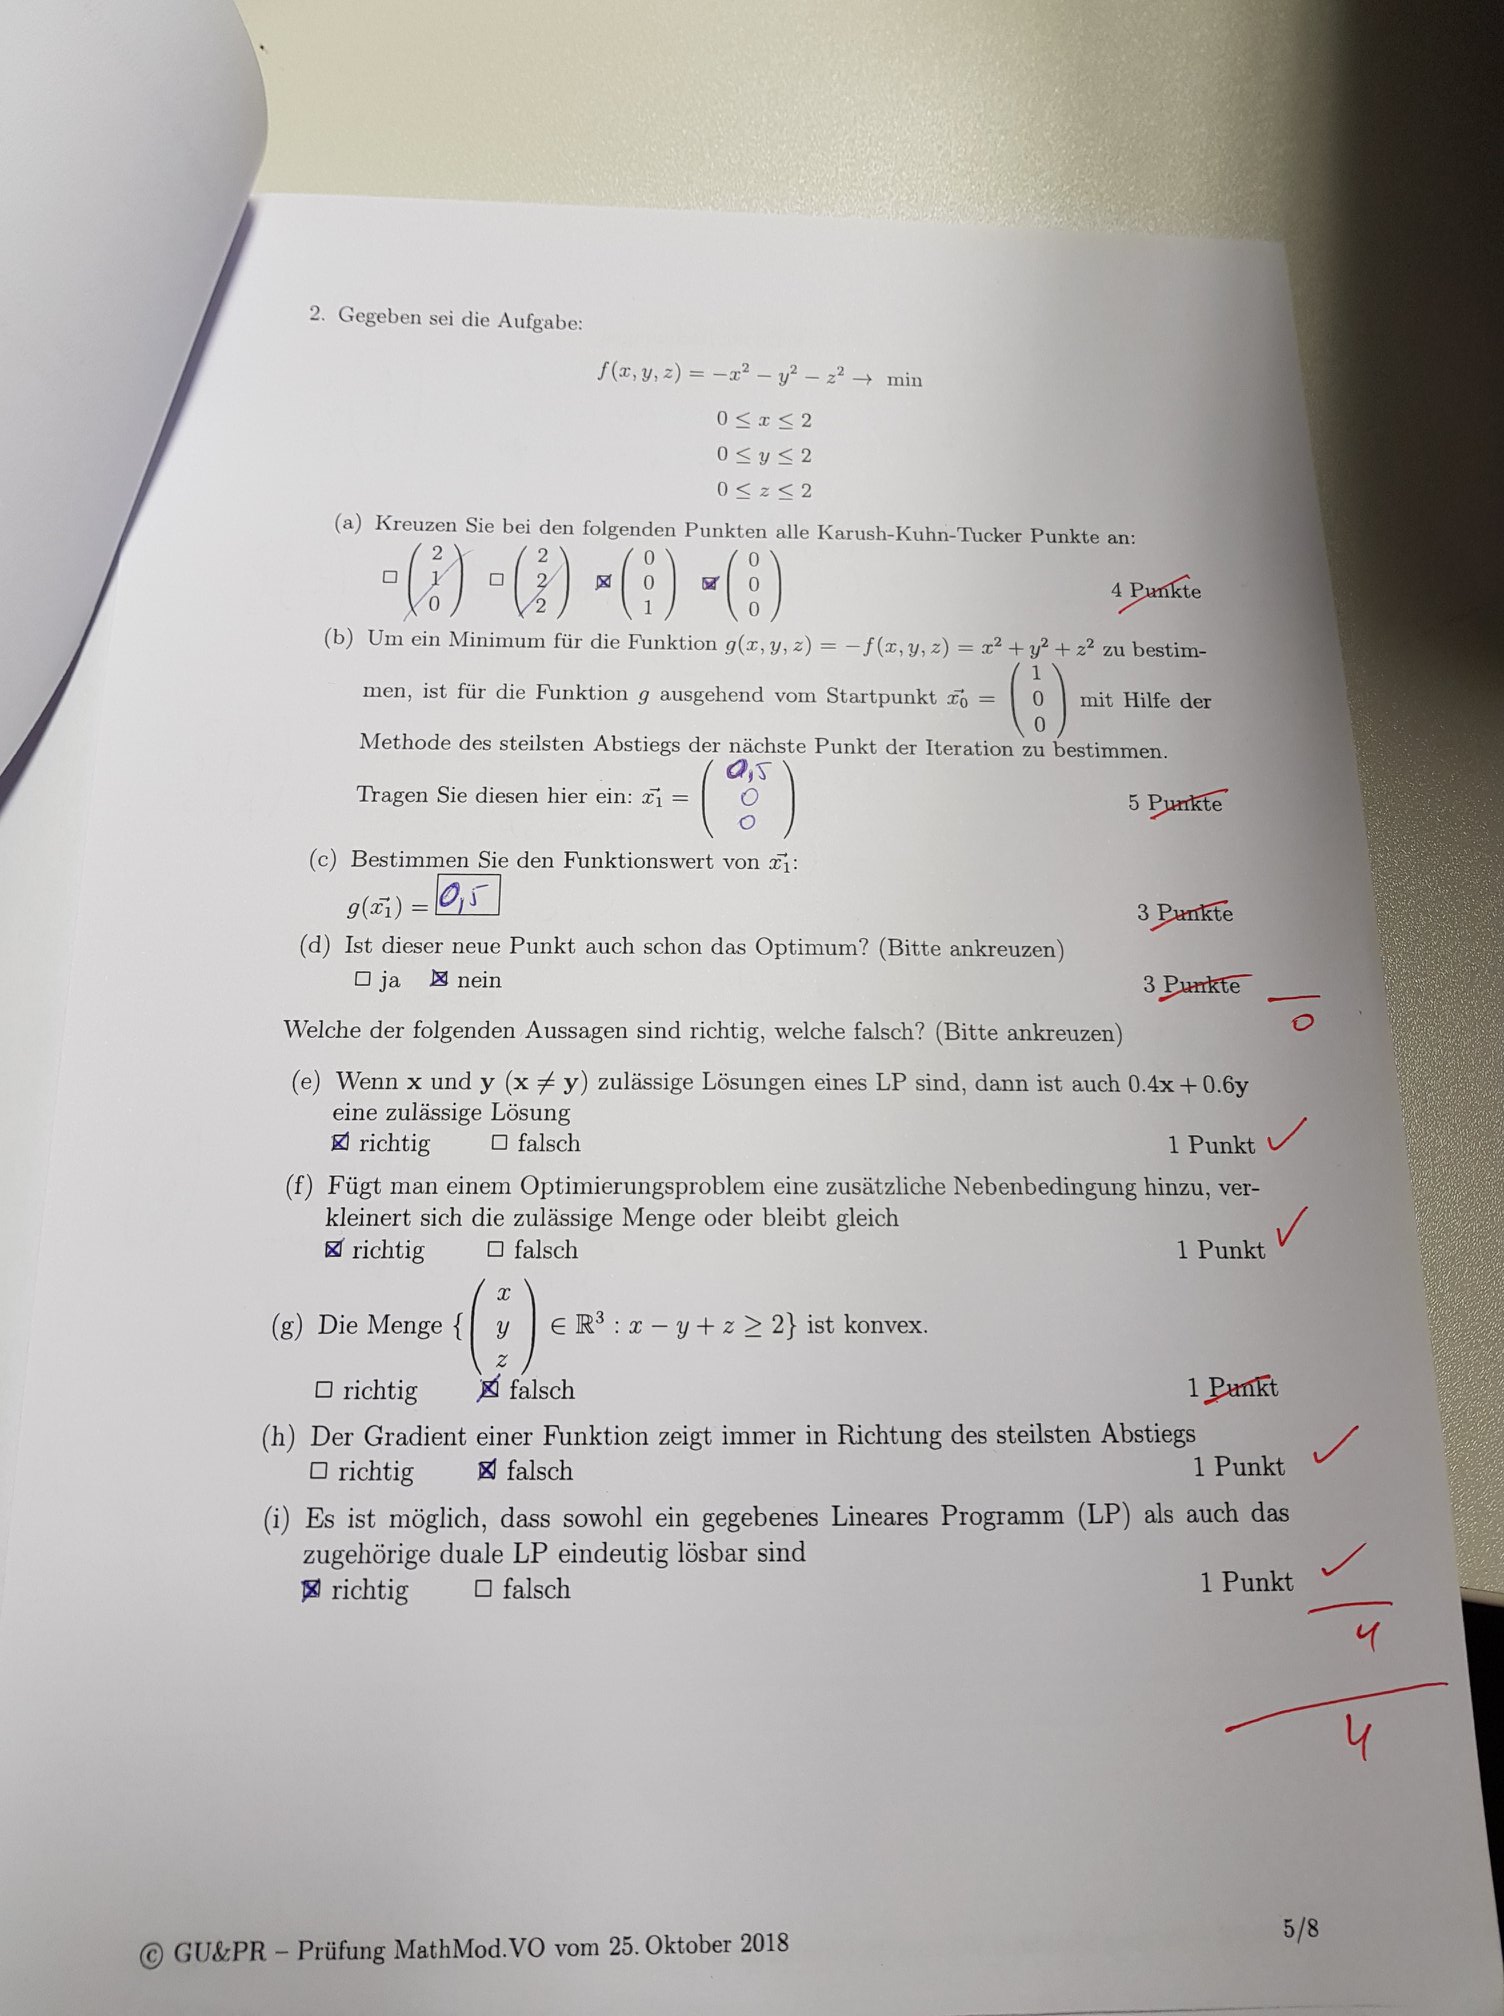 2. Gegeben sei die Aufgabe:
f(x, y, z) = −x² − y² − z² → min
0 ≤ x ≤ 2
0 ≤ y ≤ 2
0 ≤ z ≤ 2
(a) Kreuzen Sie bei den folgenden Punkten alle Karush-Kuhn-Tucker Punkte an:
☐ (2 1 0) ☐ (2 2 2) ☒ (0 0 1) ☒ (0 0 0) 4 Punkte
(b) Um ein Minimum für die Funktion g(x, y, z) = −f(x, y, z) = x² + y² + z² zu bestim-
men, ist für die Funktion g ausgehend vom Startpunkt x⃗₀ = (1 0 0) mit Hilfe der
Methode des steilsten Abstiegs der nächste Punkt der Iteration zu bestimmen.
Tragen Sie diesen hier ein: x⃗₁ = (0,5 0 0) 5 Punkte
(c) Bestimmen Sie den Funktionswert von x⃗₁:
g(x⃗₁) = 0,5 3 Punkte
(d) Ist dieser neue Punkt auch schon das Optimum? (Bitte ankreuzen)
☐ ja ☒ nein 3 Punkte
0
Welche der folgenden Aussagen sind richtig, welche falsch? (Bitte ankreuzen)
(e) Wenn x und y (x ≠ y) zulässige Lösungen eines LP sind, dann ist auch 0.4x + 0.6y
eine zulässige Lösung
☒ richtig ☐ falsch 1 Punkt ✓
(f) Fügt man einem Optimierungsproblem eine zusätzliche Nebenbedingung hinzu, ver-
kleinert sich die zulässige Menge oder bleibt gleich
☒ richtig ☐ falsch 1 Punkt ✓
(g) Die Menge {(x y z) ∈ ℝ³ : x − y + z ≥ 2} ist konvex.
☐ richtig ☒ falsch 1 Punkt
(h) Der Gradient einer Funktion zeigt immer in Richtung des steilsten Abstiegs
☐ richtig ☒ falsch 1 Punkt ✓
(i) Es ist möglich, dass sowohl ein gegebenes Lineares Programm (LP) als auch das
zugehörige duale LP eindeutig lösbar sind
☒ richtig ☐ falsch 1 Punkt ✓
4
4
© GU&PR – Prüfung MathMod.VO vom 25. Oktober 2018 5/8